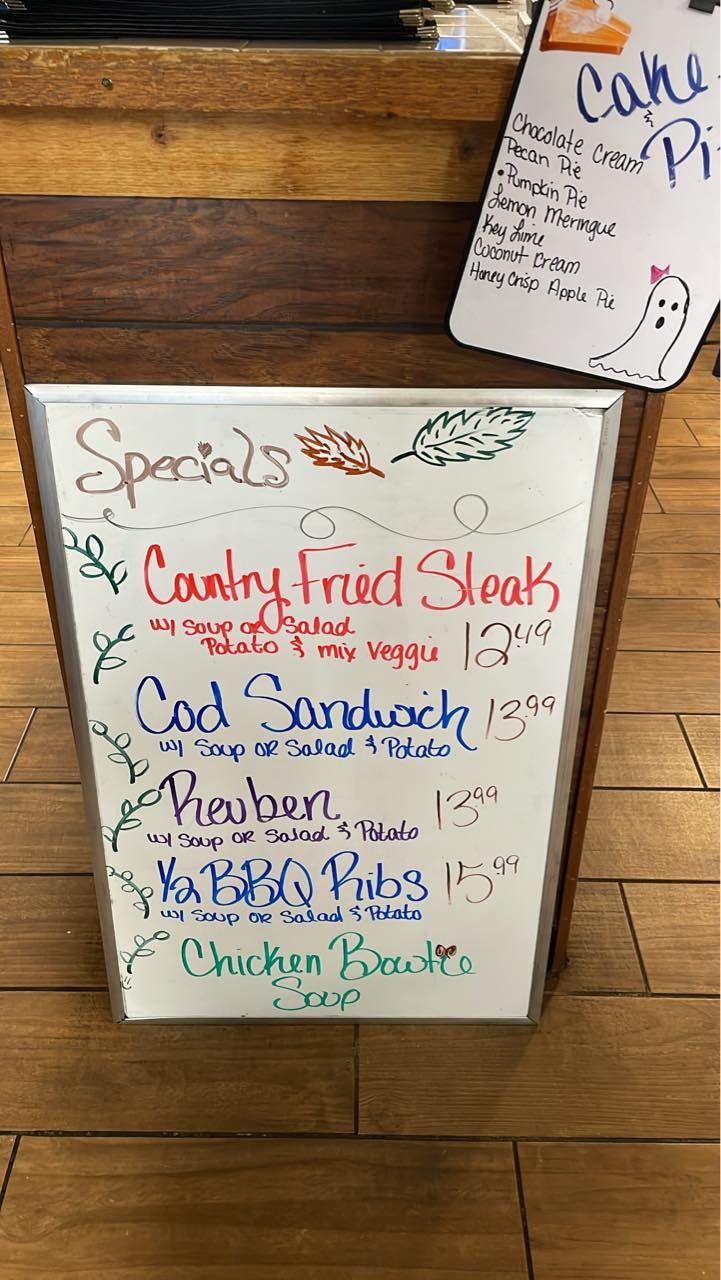 Cake
&
Pi
Chocolate Cream
Pecan Pie
• Pumpkin Pie
Lemon Meringue
Key Lime
Coconut Cream
Honey Crisp Apple Pie
Specials
Country Fried Steak
w/ Soup or Salad
Potato & mix Veggie 12.49
Cod Sandwich 13.99
w/ Soup OR Salad & Potato
Reuben 13.99
w/ Soup OR Salad & Potato
1/2 BBQ Ribs 15.99
w/ Soup OR Salad & Potato
Chicken Bowtie
Soup